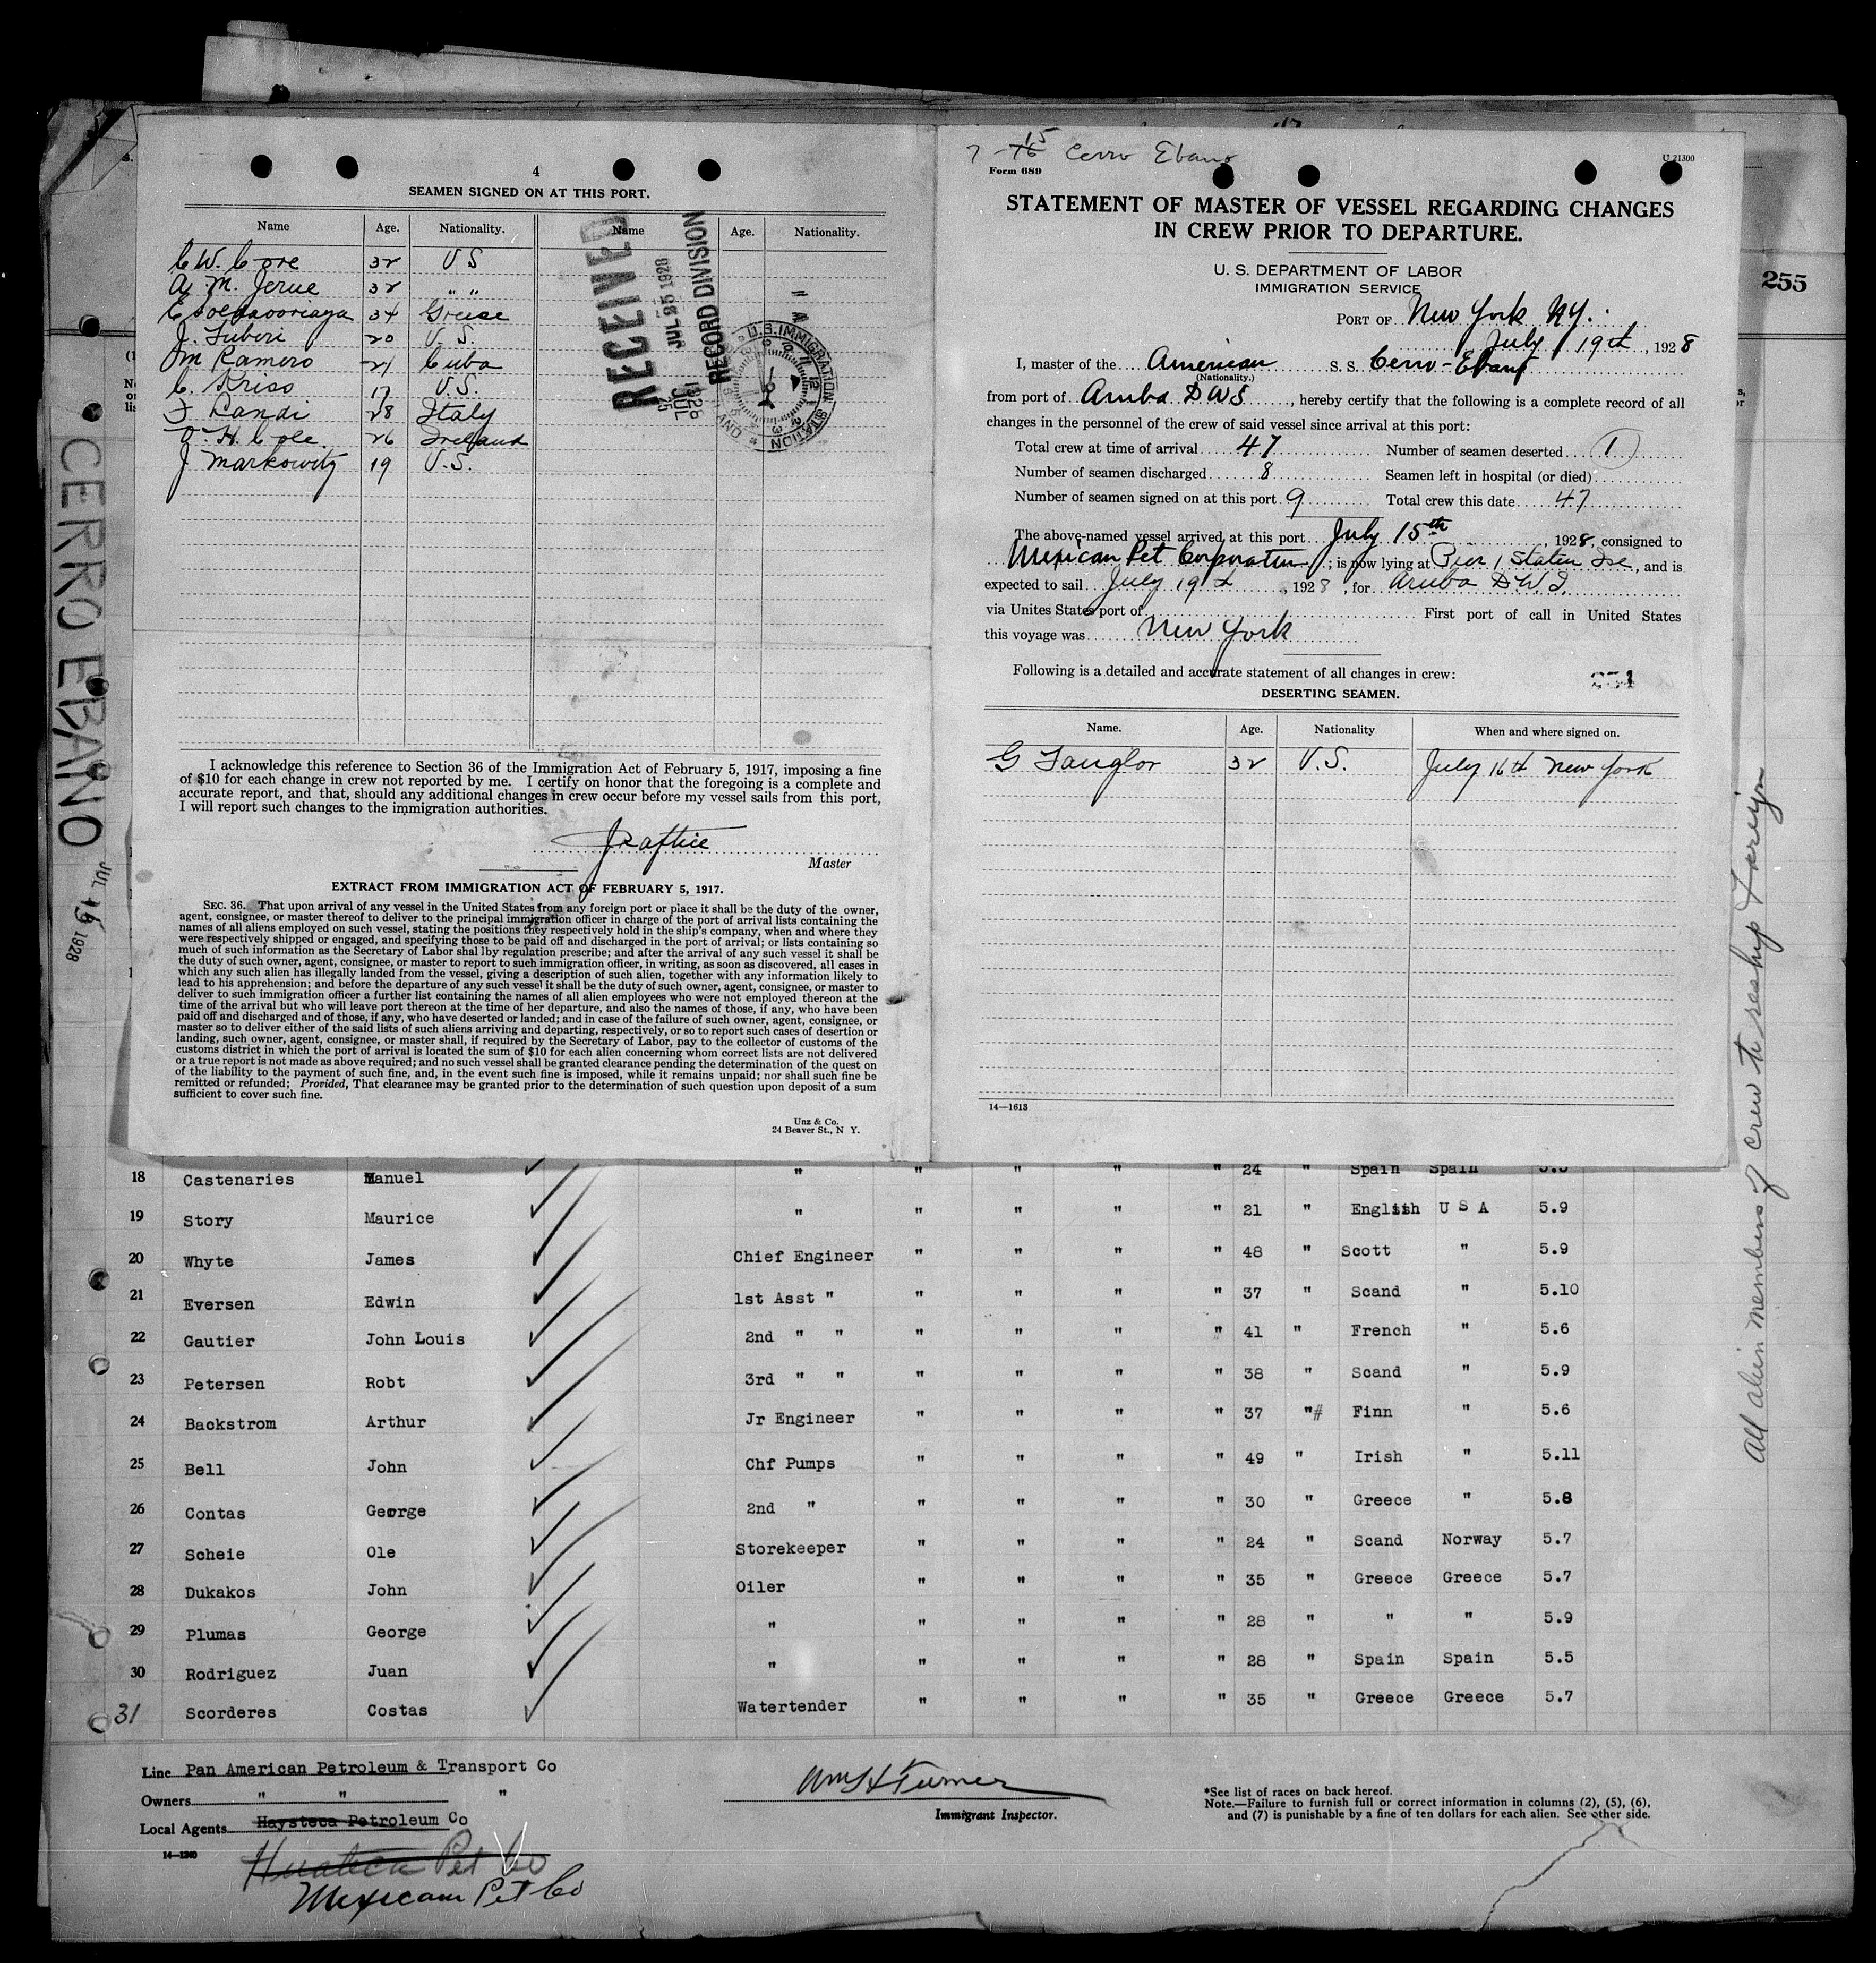 4
SEAMEN SIGNED ON AT THIS PORT.
Name Age. Nationality. Name Age. Nationality.
C W. Core 32 U S
A. M. Jerue 32 " "
34 Greise
J. Tuberi 20 U. S.
M Ramero 21 Cuba
C. Kriso 17 U.S.
F Landi 28 Italy
O. H. Cole. 26 Ireland
J Markowitz 19 U.S.
RECEIVED
JUL 25 1928
RECORD DIVISION
U.S. IMMIGRATION STATION
I acknowledge this reference to Section 36 of the Immigration Act of February 5, 1917, imposing a fine
of $10 for each change in crew not reported by me. I certify on honor that the foregoing is a complete and
accurate report, and that, should any additional changes in crew occur before my vessel sails from this port,
I will report such changes to the immigration authorities.
Master
EXTRACT FROM IMMIGRATION ACT OF FEBRUARY 5, 1917.
SEC. 36. That upon arrival of any vessel in the United States from any foreign port or place it shall be the duty of the owner,
agent, consignee, or master thereof to deliver to the principal immigration officer in charge of the port of arrival lists containing the
names of all aliens employed on such vessel, stating the positions they respectively hold in the ship's company, when and where they
were respectively shipped or engaged, and specifying those to be paid off and discharged in the port of arrival; or lists containing so
much of such information as the Secretary of Labor shal lby regulation prescribe; and after the arrival of any such vessel it shall be
the duty of such owner, agent, consignee, or master to report to such immigration officer, in writing, as soon as discovered, all cases in
which any such alien has illegally landed from the vessel, giving a description of such alien, together with any information likely to
lead to his apprehension; and before the departure of any such vessel it shall be the duty of such owner, agent, consignee, or master to
deliver to such immigration officer a further list containing the names of all alien employees who were not employed thereon at the
time of the arrival but who will leave port thereon at the time of her departure, and also the names of those, if any, who have been
paid off and discharged and of those, if any, who have deserted or landed; and in case of the failure of such owner, agent, consignee, or
master so to deliver either of the said lists of such aliens arriving and departing, respectively, or so to report such cases of desertion or
landing, such owner, agent, consignee, or master shall, if required by the Secretary of Labor, pay to the collector of customs of the
customs district in which the port of arrival is located the sum of $10 for each alien concerning whom correct lists are not delivered
or a true report is not made as above required; and no such vessel shall be granted clearance pending the determination of the quest on
of the liability to the payment of such fine, and, in the event such fine is imposed, while it remains unpaid; nor shall such fine be
remitted or refunded; Provided, That clearance may be granted prior to the determination of such question upon deposit of a sum
sufficient to cover such fine.
Unz & Co.
24 Beaver St., N Y.
7 - 15 Cerro Ebano
Form 689
U 21300
STATEMENT OF MASTER OF VESSEL REGARDING CHANGES
IN CREW PRIOR TO DEPARTURE.
U. S. DEPARTMENT OF LABOR
IMMIGRATION SERVICE
PORT OF New York NY.
July 19th, 1928
I, master of the American S. S. Cerro-Ebano
(Nationality.)
from port of Aruba DWS, hereby certify that the following is a complete record of all
changes in the personnel of the crew of said vessel since arrival at this port:
Total crew at time of arrival 47 Number of seamen deserted 1
Number of seamen discharged 8 Seamen left in hospital (or died)
Number of seamen signed on at this port 9 Total crew this date 47
The above-named vessel arrived at this port July 15th, 1928, consigned to
Mexican Pet Corporation; is now lying at Pier 1 Staten Ise, and is
expected to sail July 19th, 1928, for Aruba D.W.I.
via Unites States port of First port of call in United States
this voyage was New York
Following is a detailed and accurate statement of all changes in crew:
DESERTING SEAMEN.
Name. Age. Nationality When and where signed on.
G 32 U.S. July 16th New York
14—1613
255
CERRO EBANO
JUL 16 1928
All alien members of crew to reship foreign
18 Castenaries Manuel " " " " " 24 " Spain Spain 5.5
19 Story Maurice " " " " " 21 " English U S A 5.9
20 Whyte James Chief Engineer " " " " 48 " Scott " 5.9
21 Eversen Edwin 1st Asst " " " " " 37 " Scand " 5.10
22 Gautier John Louis 2nd " " " " " " 41 " French " 5.6
23 Petersen Robt 3rd " " " " " " 38 " Scand " 5.9
24 Backstrom Arthur Jr Engineer " " " " 37 "# Finn " 5.6
25 Bell John Chf Pumps " " " " 49 " Irish " 5.11
26 Contas George 2nd " " " " " 30 " Greece " 5.8
27 Scheie Ole Storekeeper " " " " 24 " Scand Norway 5.7
28 Dukakos John Oiler " " " " 35 " Greece Greece 5.7
29 Plumas George " " " " " 28 " " " 5.9
30 Rodriguez Juan " " " " " 28 " Spain Spain 5.5
31 Scorderes Costas Watertender " " " " 35 " Greece Greece 5.7
Line Pan American Petroleum & Transport Co
Owners " " "
Local Agents Haysteca Petroleum Co
14—1240
Huasteca Pet Co
Mexican Pet Co
Wm H Turner
Immigrant Inspector.
*See list of races on back hereof.
Note.—Failure to furnish full or correct information in columns (2), (5), (6),
and (7) is punishable by a fine of ten dollars for each alien. See other side.